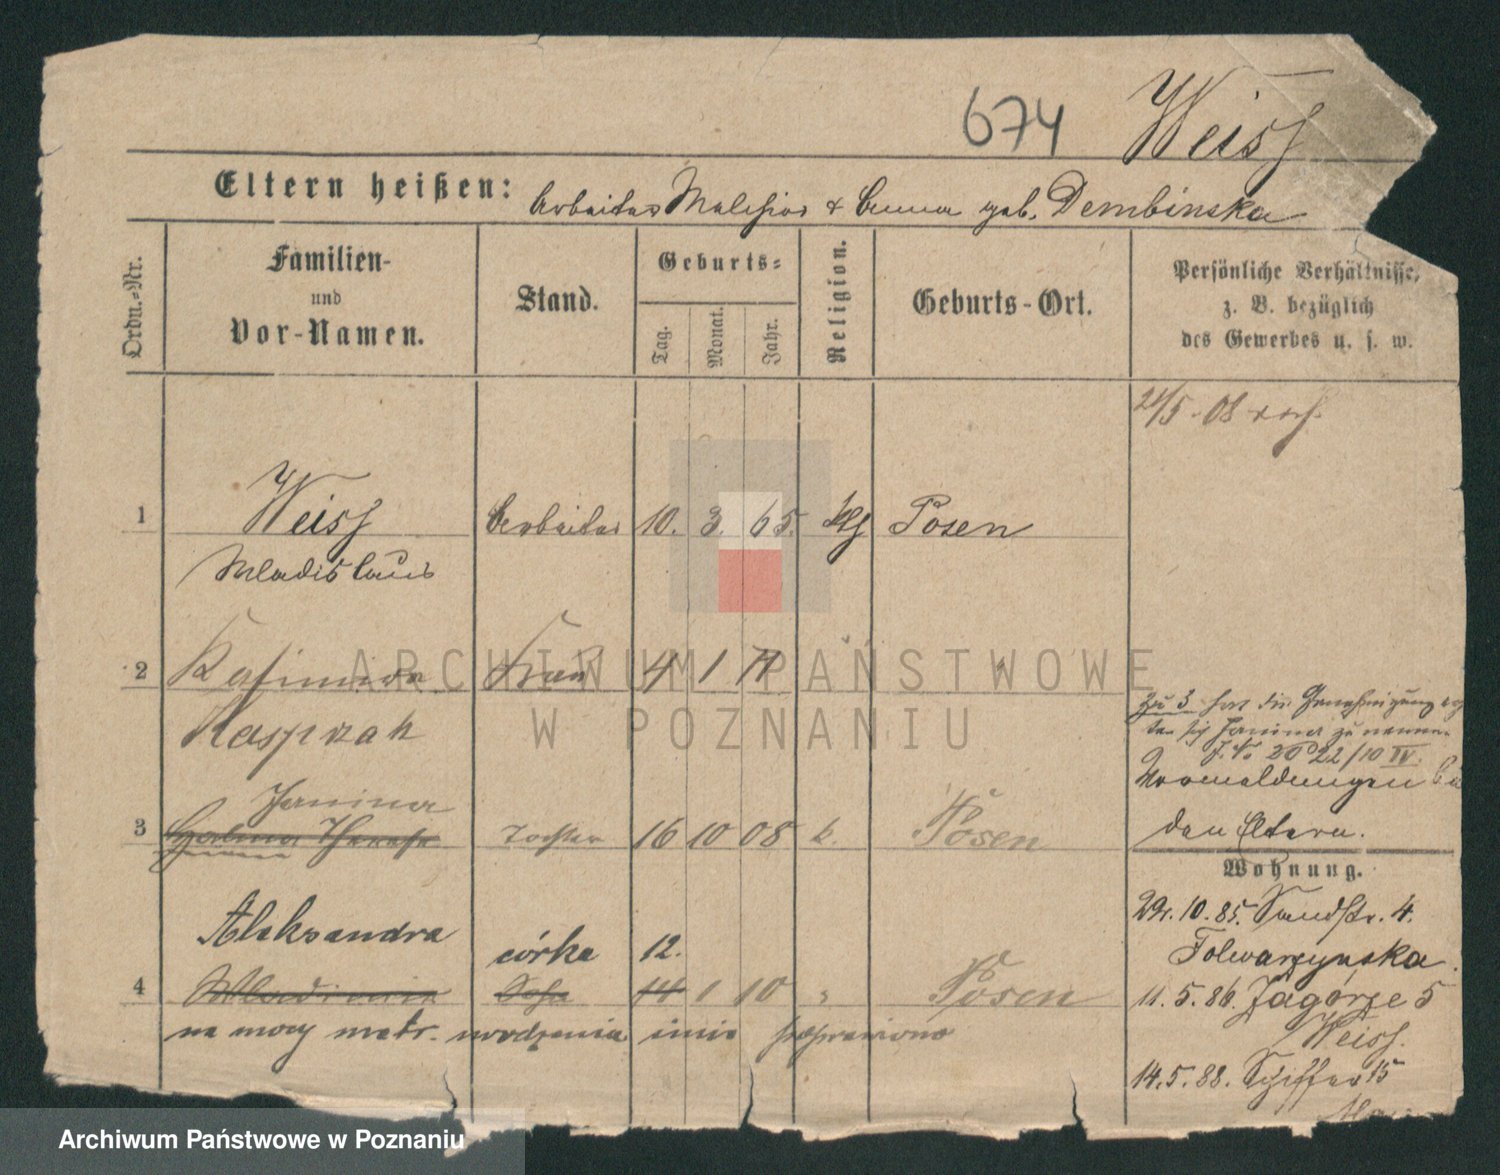 674 Weiss
Eltern heißen: Arbeiter Melchior & Anna geb. Dembinska
Ordn.-Nr.
Familien-
und
Vor-Namen.
Stand.
Geburts-
Tag.
Monat.
Jahr.
Religion.
Geburts-Ort.
Persönliche Verhältnisse,
z. B. bezüglich
des Gewerbes u. s. w.
21/5 08
1 Weiss Arbeiter 10. 3. 65. Posen
Wladislaus
2 Kasimira Frau 4 1
Kasprzak
Janina
3 Halina Tochter 16 10 08 k. Posen
Aleksandra córka 12.
4 14 1 10 Posen
na mocy metr. urodzenia imię poprawiono
zu 3 hat die Genehmigung
sich Janina zu nennen
22/10 IV.
den Eltern.
Wohnung.
29. 10. 85. Sandstr. 4.
Folwarzynska
11. 5. 86. Zagórze 5
Weiss.
14. 5. 88. Schiffer 15
ARCHIWUM PAŃSTWOWE
W POZNANIU
Archiwum Państwowe w Poznaniu